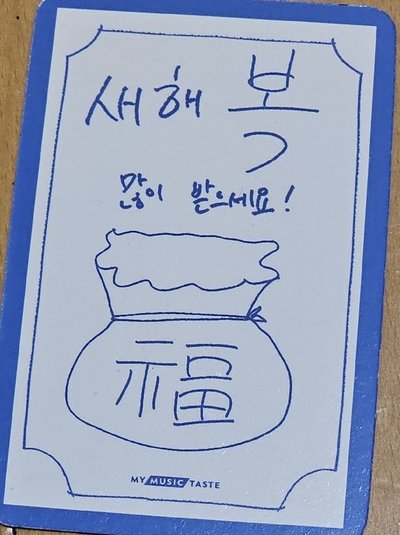 새해 복
많이 받으세요!
福
MY MUSIC TASTE